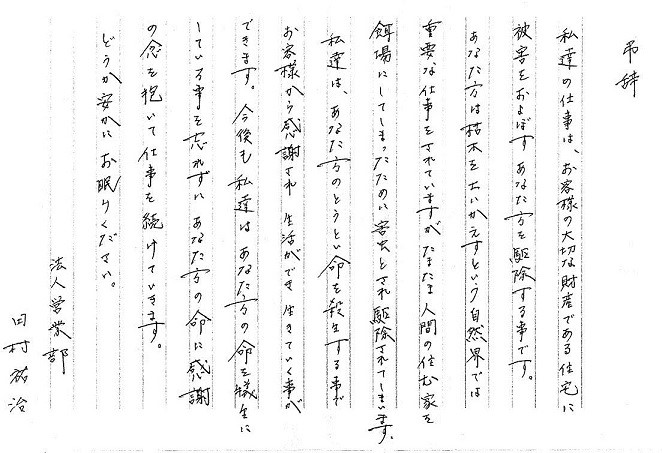 弔辞
私達の仕事は、お客様の大切な財産である住宅に
被害をおよぼすあなた方を駆除する事です。
あなた方は枯木を土にかえすという自然界では
重要な仕事をされていますがたまたま人間の住む家を
餌場にしてしまったために害虫とされ駆除されてしまいます。
私達は、あなた方のとうとい命を殺生する事で
お客様から感謝され生活ができ生きていく事が
できます。今後も私達はあなた方の命を犠牲に
している事を忘れずにあなた方の命に感謝
の念を抱いて仕事を続けていきます。
どうか安かにお眠りください。
法人営業部
田村祐治